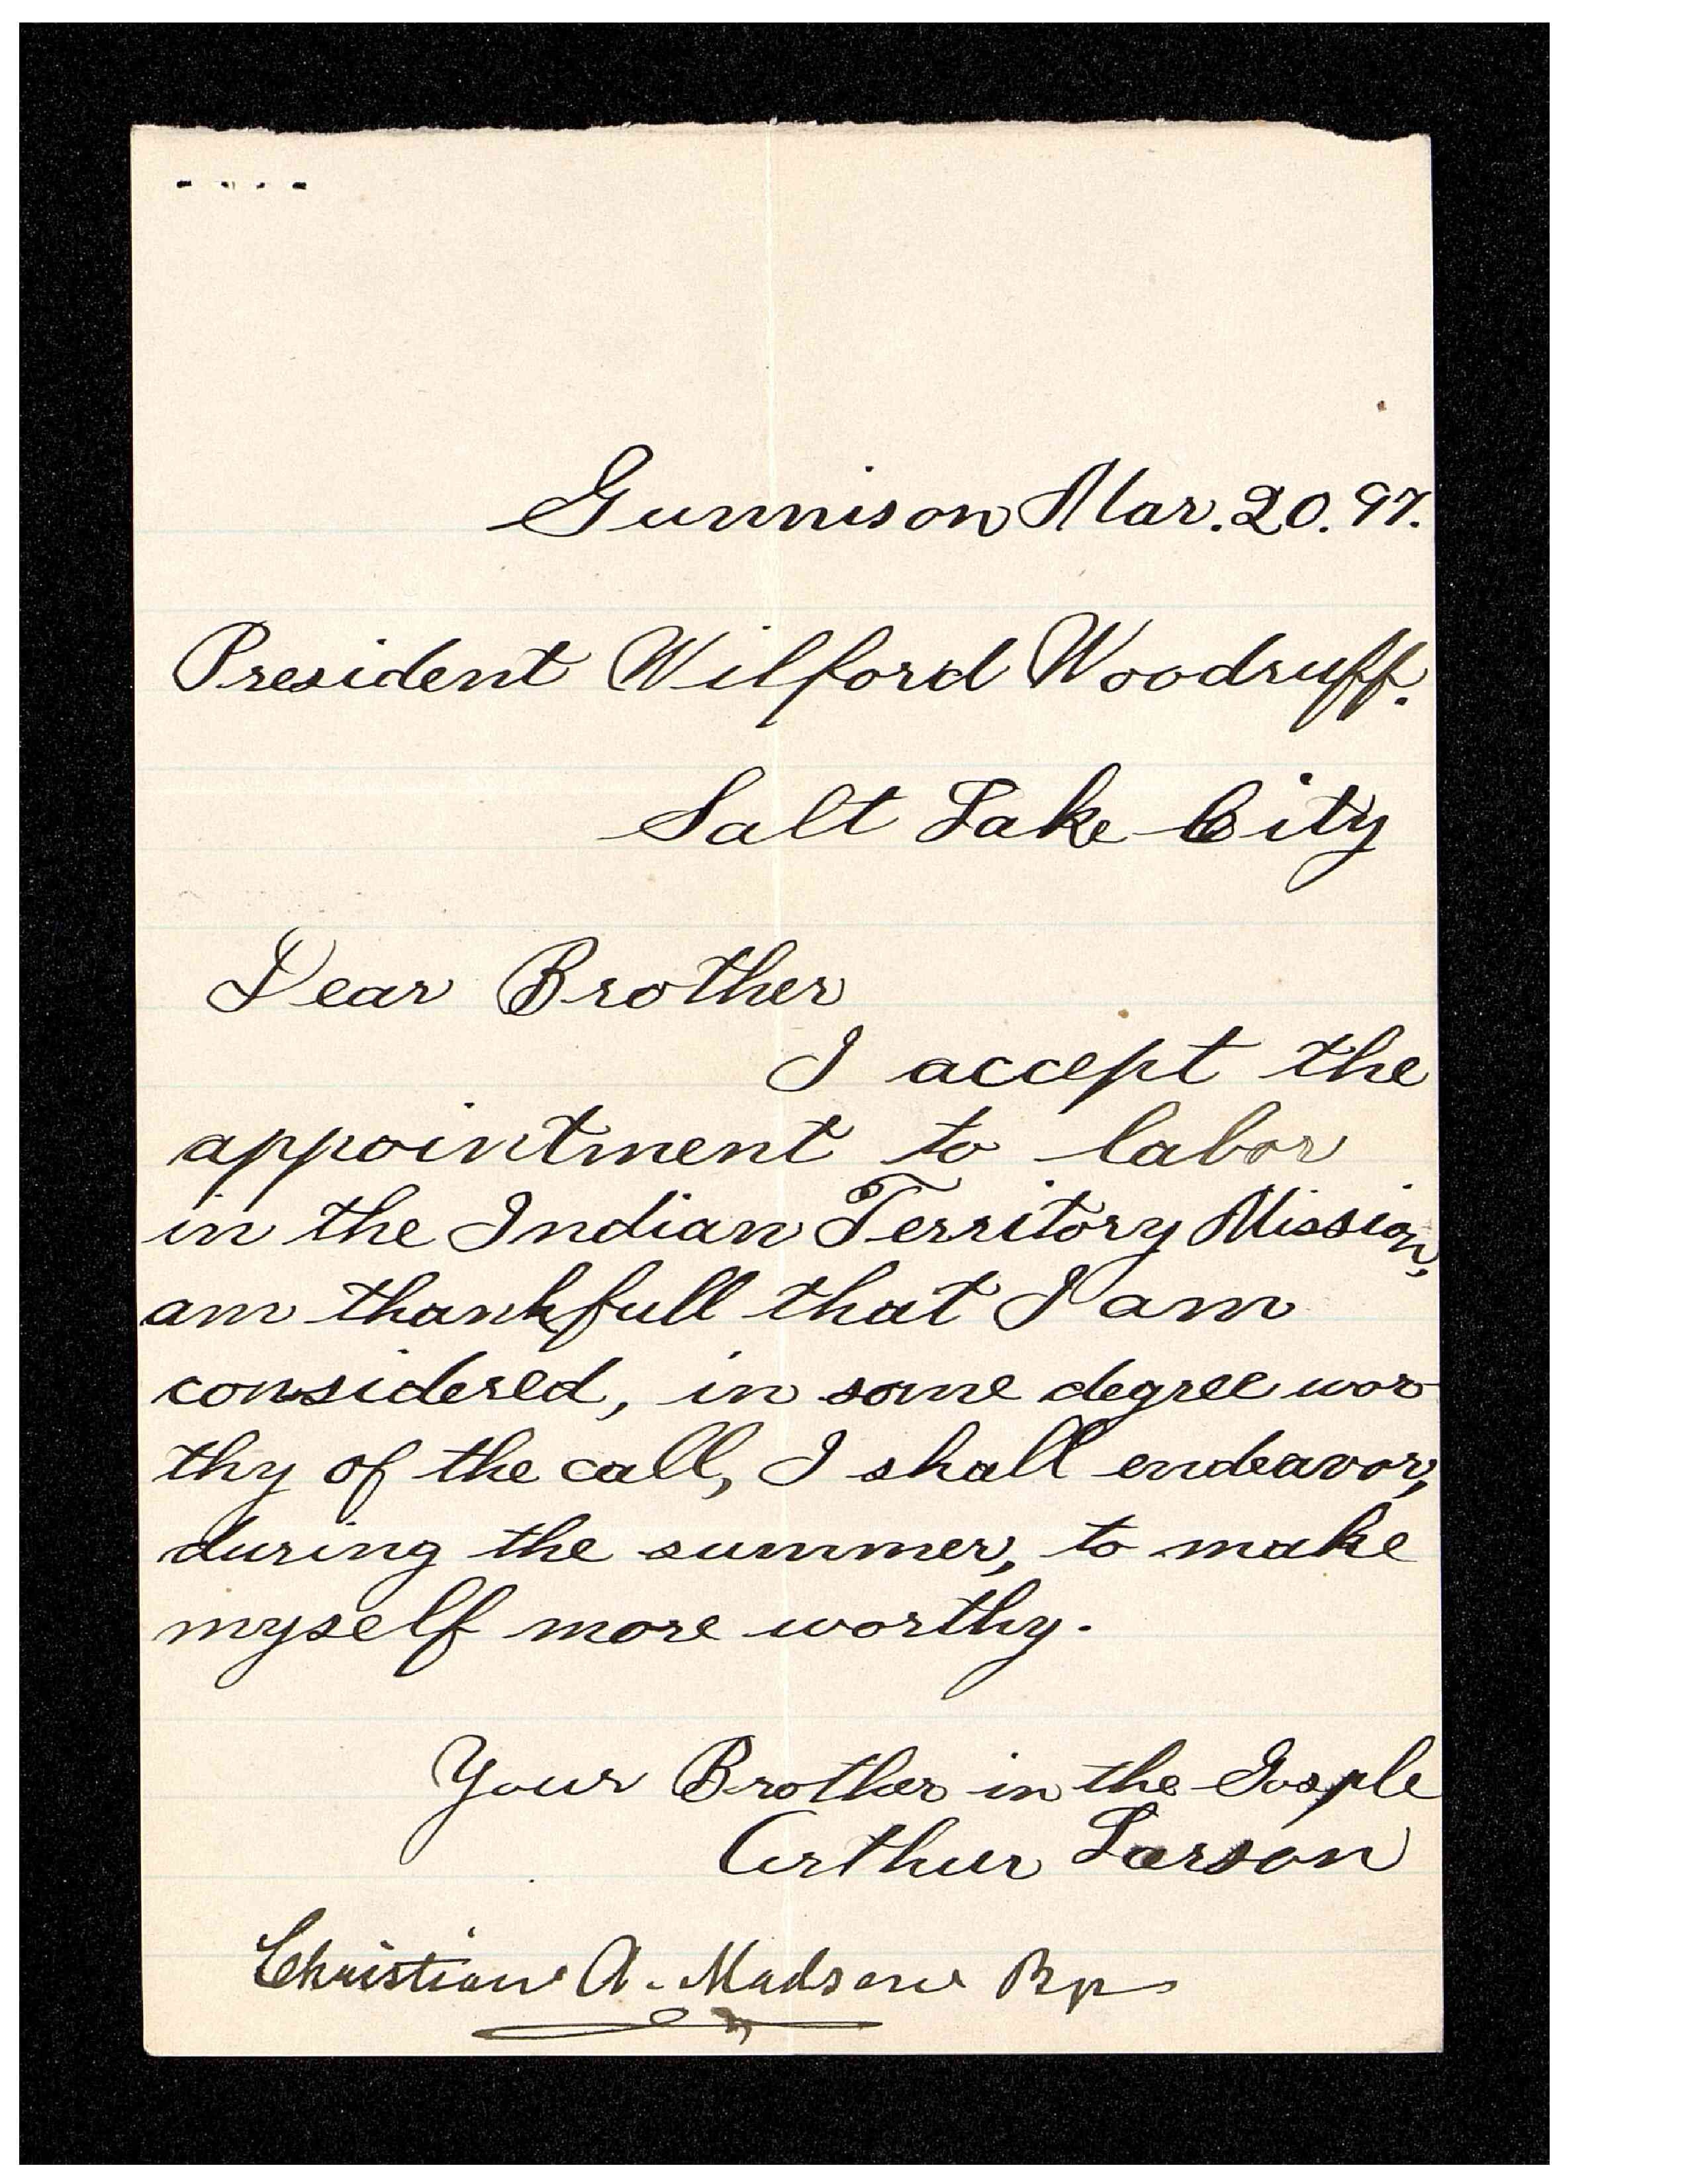 Gunnison Mar. 20. 97.
President Wilford Woodruff.
Salt Lake City
Dear Brother
I accept the
appointment to labor
in the Indian Territory Mission,
am thankfull that I am
considered, in some degree wor
thy of the call, I shall endeavor,
during the summer, to make
myself more worthy.
Your Brother in the Gosple
Arthur Larson
Christian A. Madsen Bp